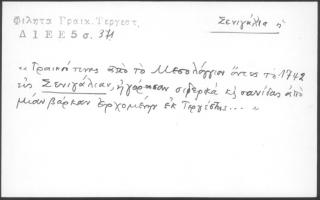 Φίλητα Γραικ. Τεργεστ.
Δ Ι Ε Ε 5 σ. 371
Σενιγάλια ἡ
« Γραικοί τινες ἀπό τό Μεσολόγγιον ὄντες τό 1742
εἰς Σενιγάλιαν, ἠγόρασαν σιδερικά κ̣ σανίδας ἀπό
μίαν βάρκαν ἐρχομένην ἐκ Τεργέστης... »